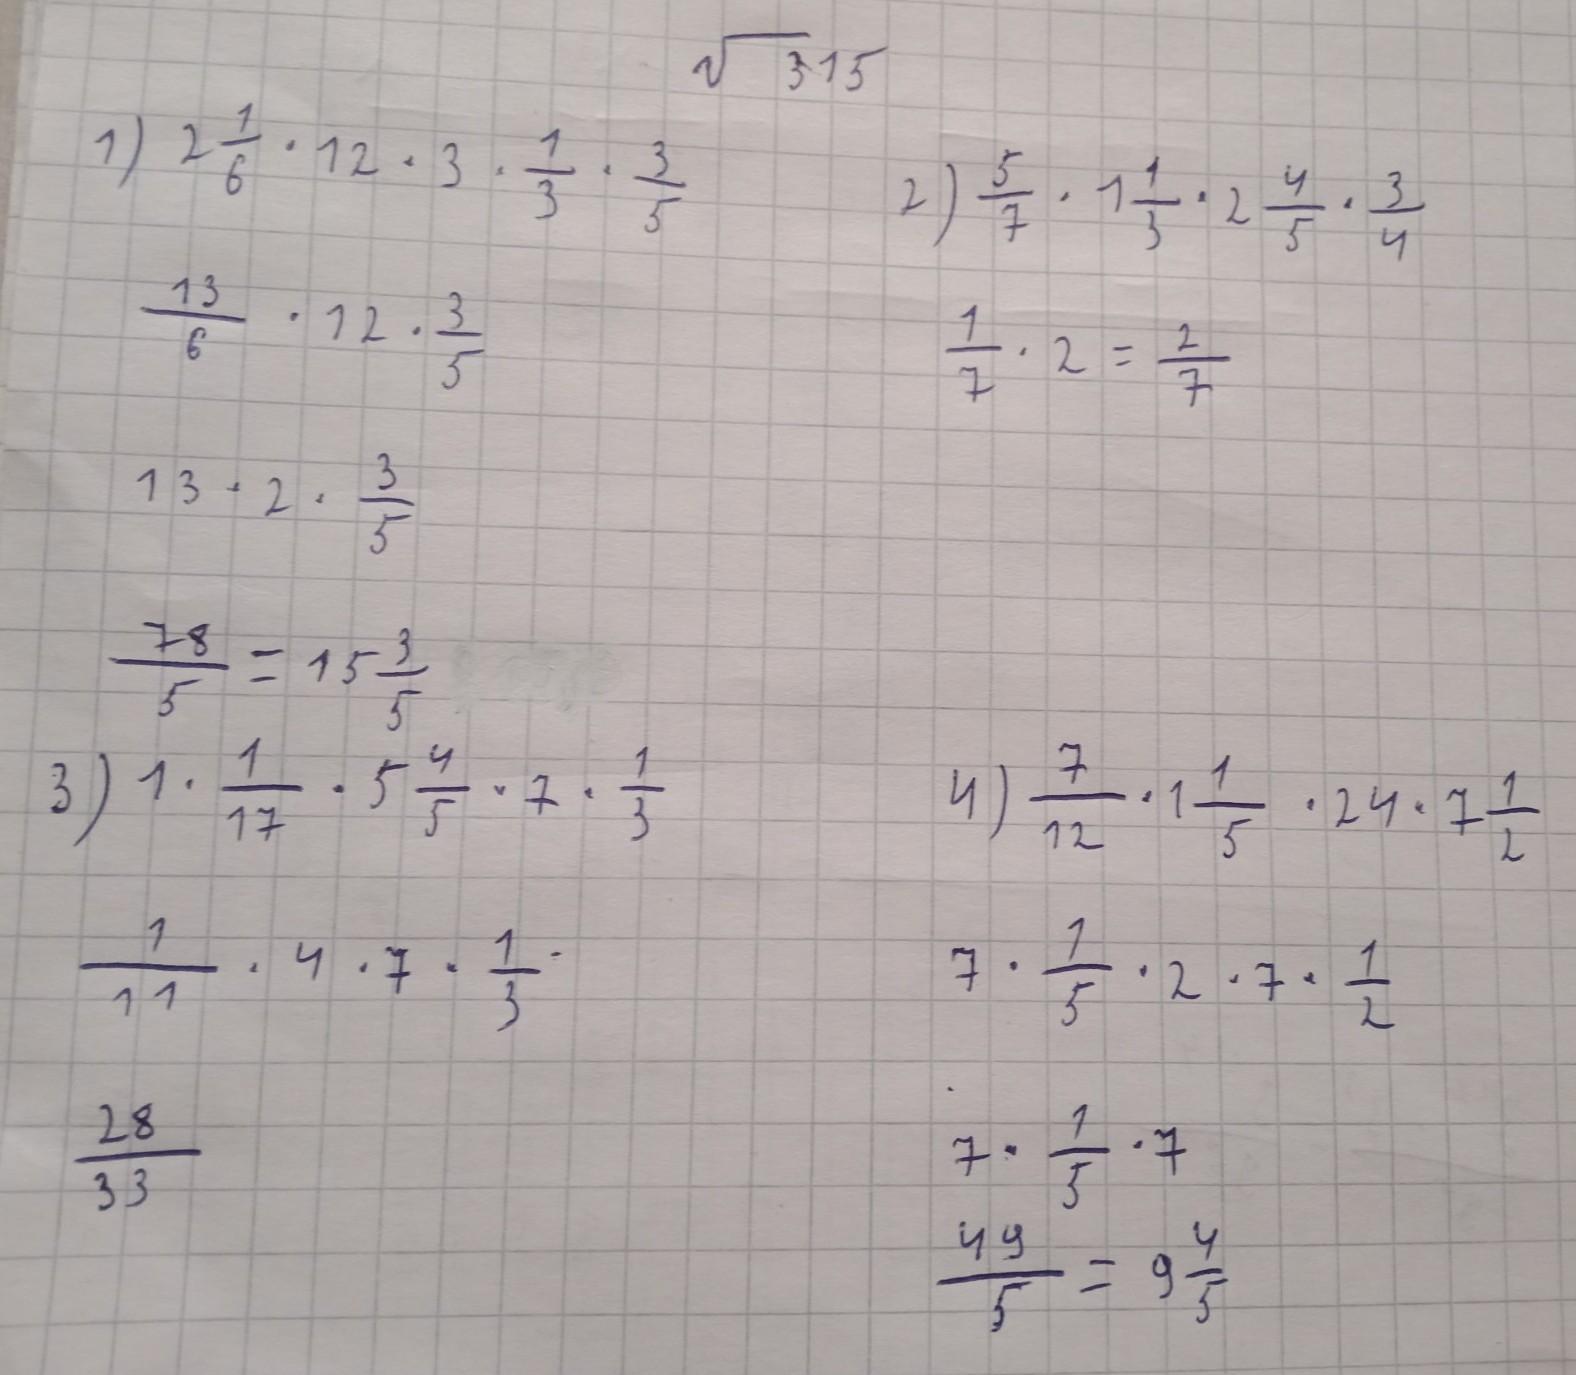 √ 315
1) 2 1/6 · 12 · 3 · 1/3 · 3/5
13/6 · 12 · 3/5
13 · 2 · 3/5
78/5 = 15 3/5
2) 5/7 · 1 1/3 · 2 4/5 · 3/4
1/7 · 2 = 2/7
3) 1 · 1/17 · 5 4/5 · 7 · 1/3
1/11 · 4 · 7 · 1/3
28/33
4) 7/12 · 1 1/5 · 24 · 7 1/2
7 · 1/5 · 2 · 7 · 1/2
7 · 1/5 · 7
49/5 = 9 4/5